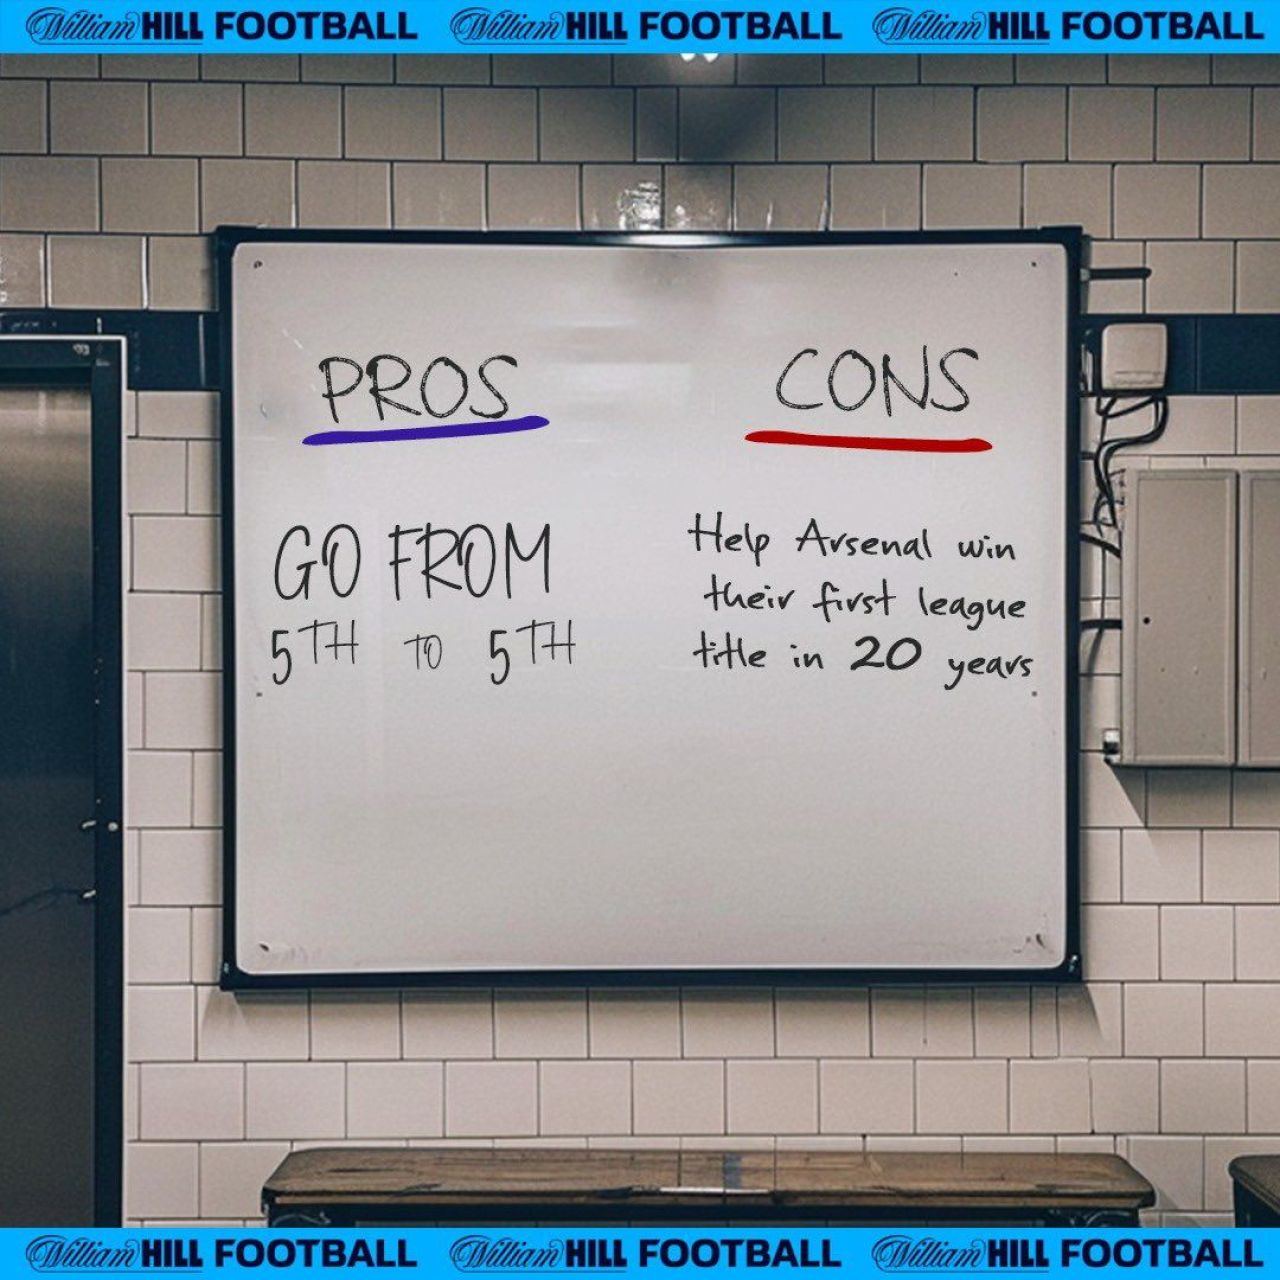 William HILL FOOTBALL William HILL FOOTBALL William HILL FOOTBALL
PROS
CONS
GO FROM
5TH TO 5TH
Help Arsenal win
their first league
title in 20 years
William HILL FOOTBALL William HILL FOOTBALL William HILL FOOTBALL